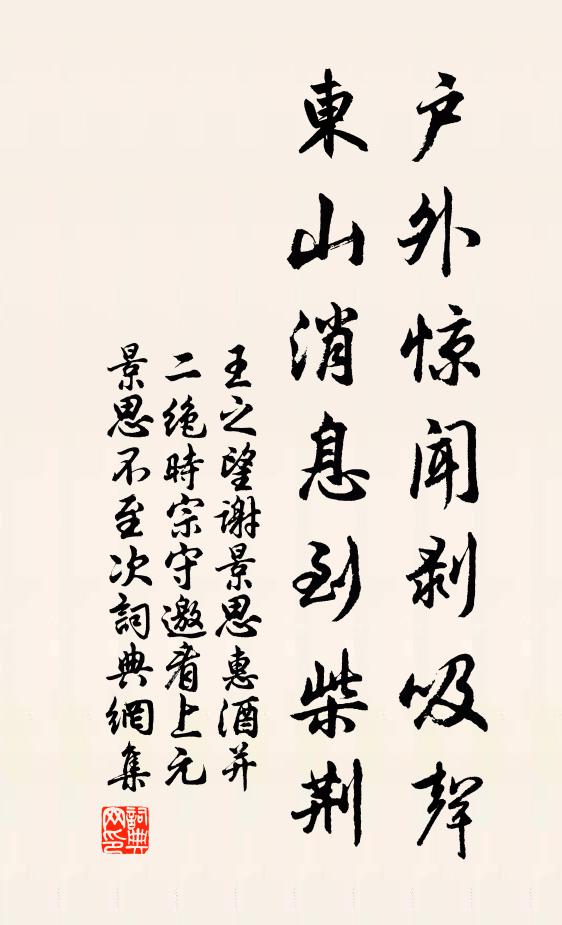 户外惊闻剥吸聲
東山消息到柴荆
王之望謝景思惠酒并
二絶時宗守邀看上元
景思不至次詞典網集
詞典网印